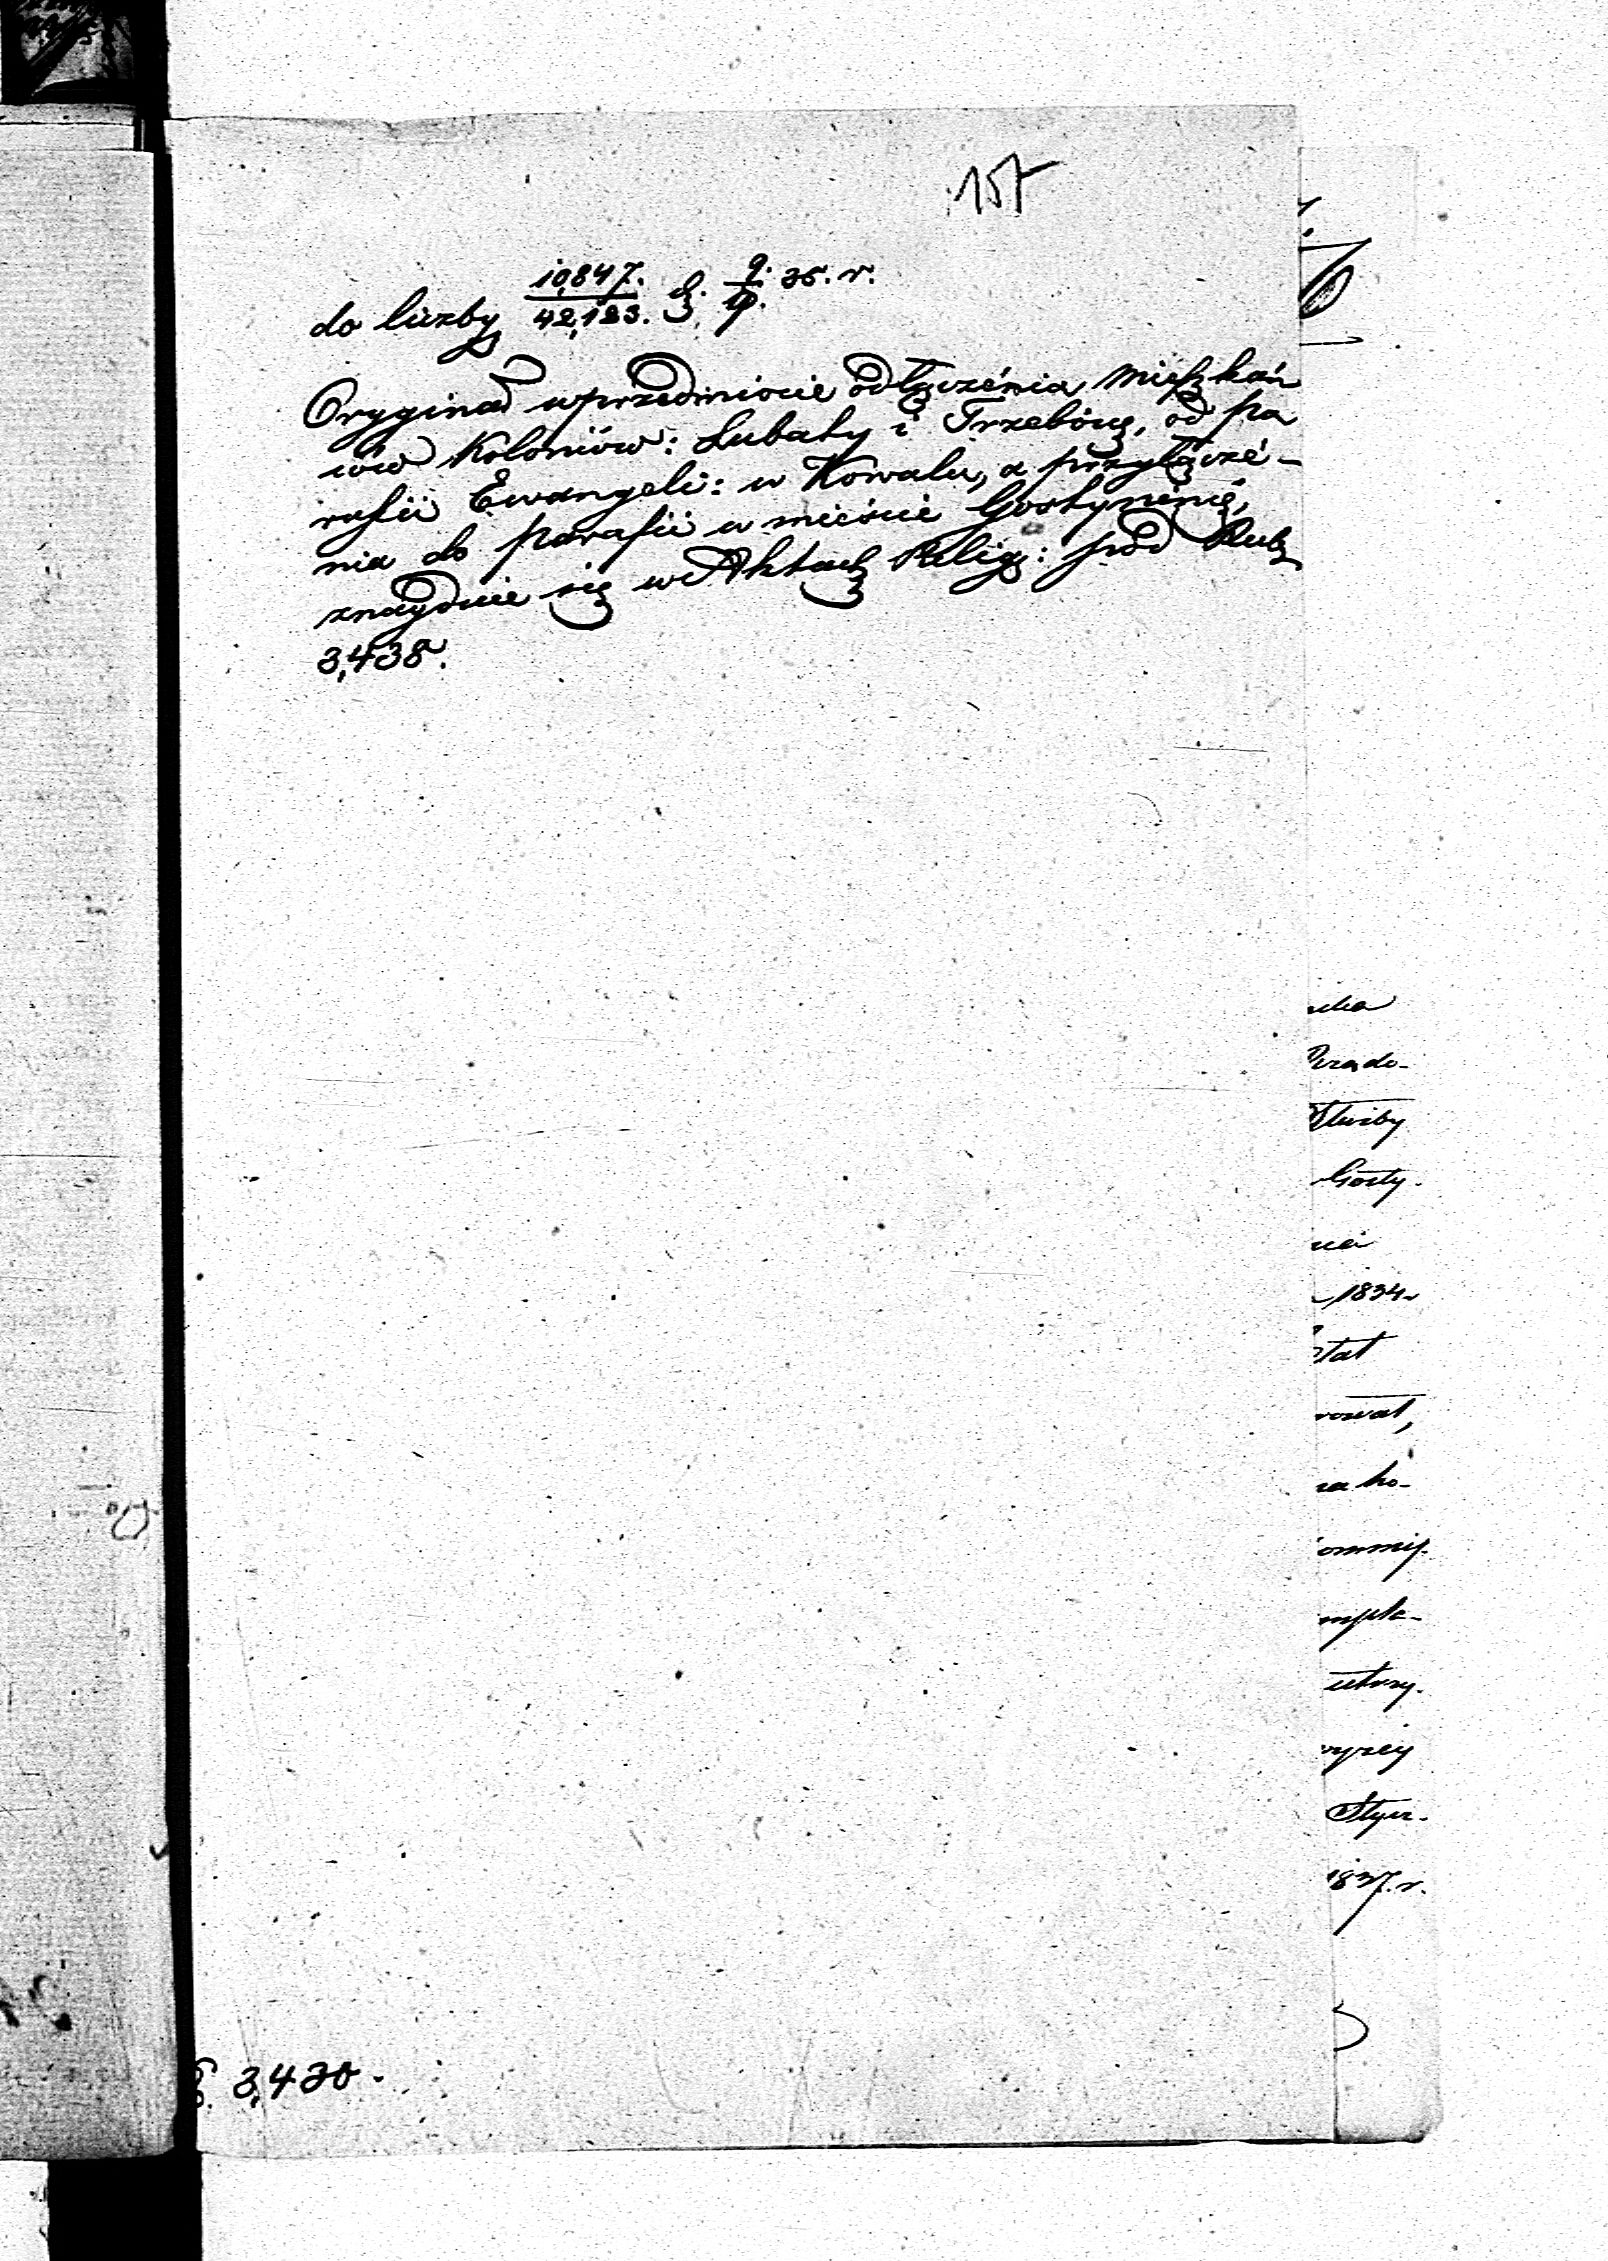 157
do liczby 10,847./42,123. d. 9./4. 35. r.
Oryginał w przedmiocie odłączénia mieszkań
ców Koloniów: Lubaty i Trzebów, od pa
rafii Ewangeli: w Kowalu, a przyłączé-
nia do parafii w mieście Gostyninie,
znayduie się w Aktach Relig: pod Rub
3,438.
ucha
rzado-
Służby
Gosty-
nei
1834
tat
rował,
na ko-
ommiss-
mpla-
utrzy-
wyżey
Stycz-
1837. r.
3,430.